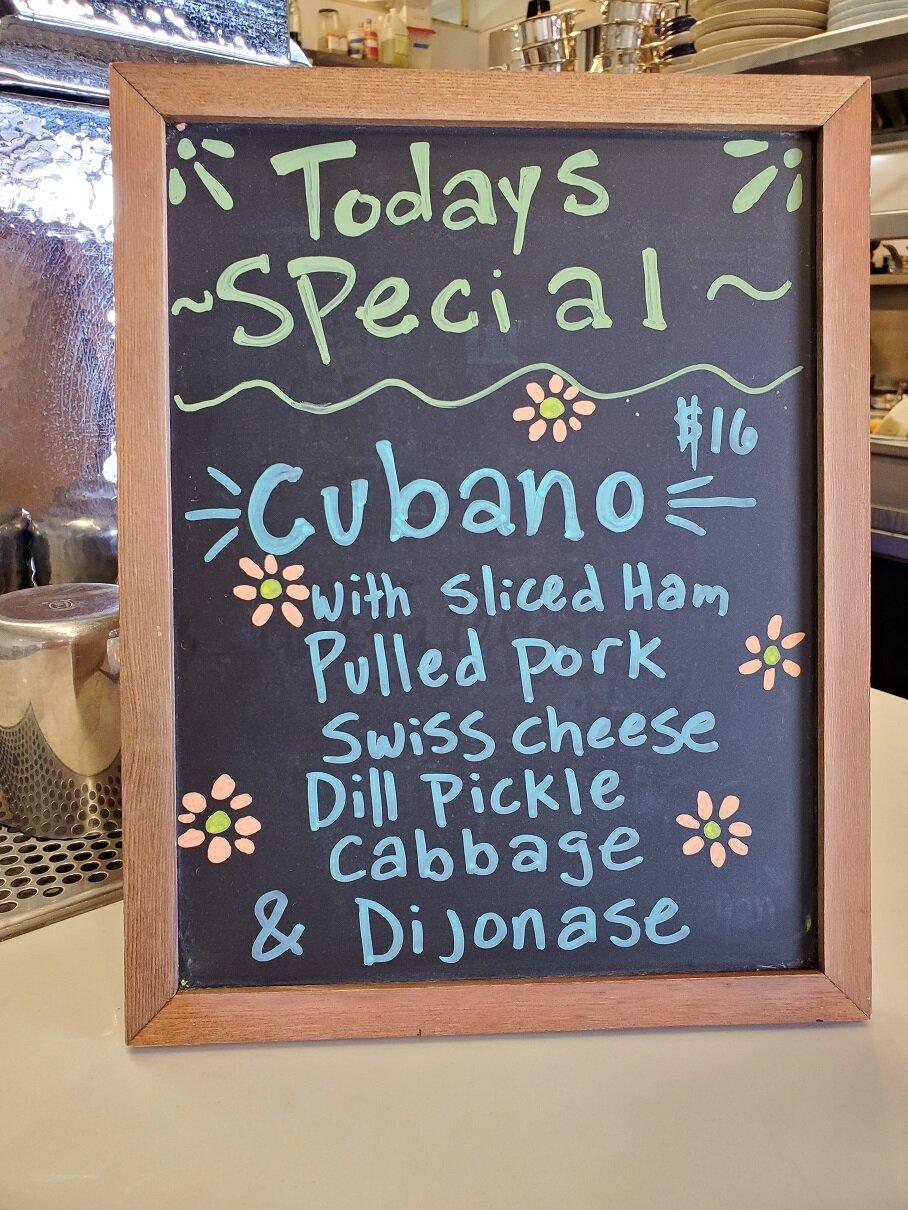 Todays
~Special~
$16
Cubano
with sliced Ham
Pulled pork
Swiss cheese
Dill Pickle
Cabbage
& Dijonase